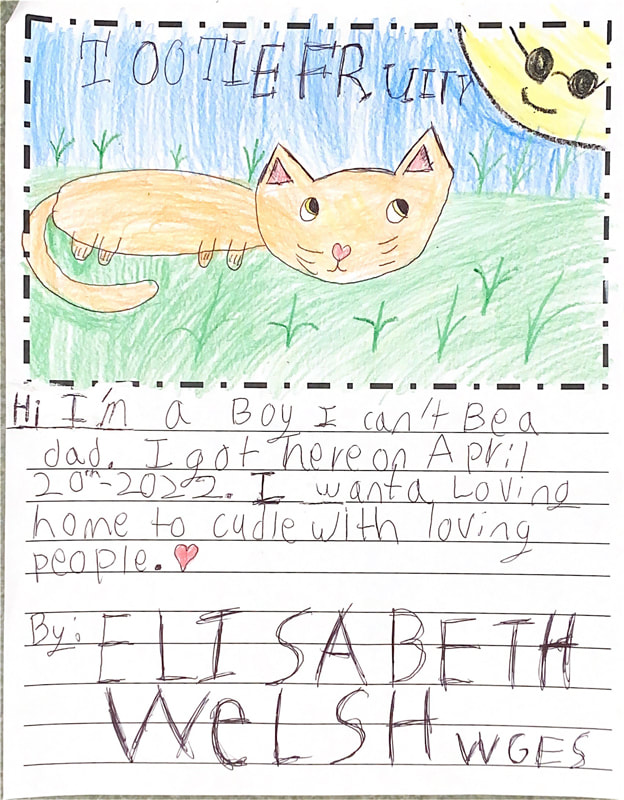 TOOTIE FRUITY
Hi I'm a Boy I can't Be a
dad. I got here on April
20th-2022. I want a Loving
home to cudle with loving
people.
By: ELISABETH
WeLSH WGES